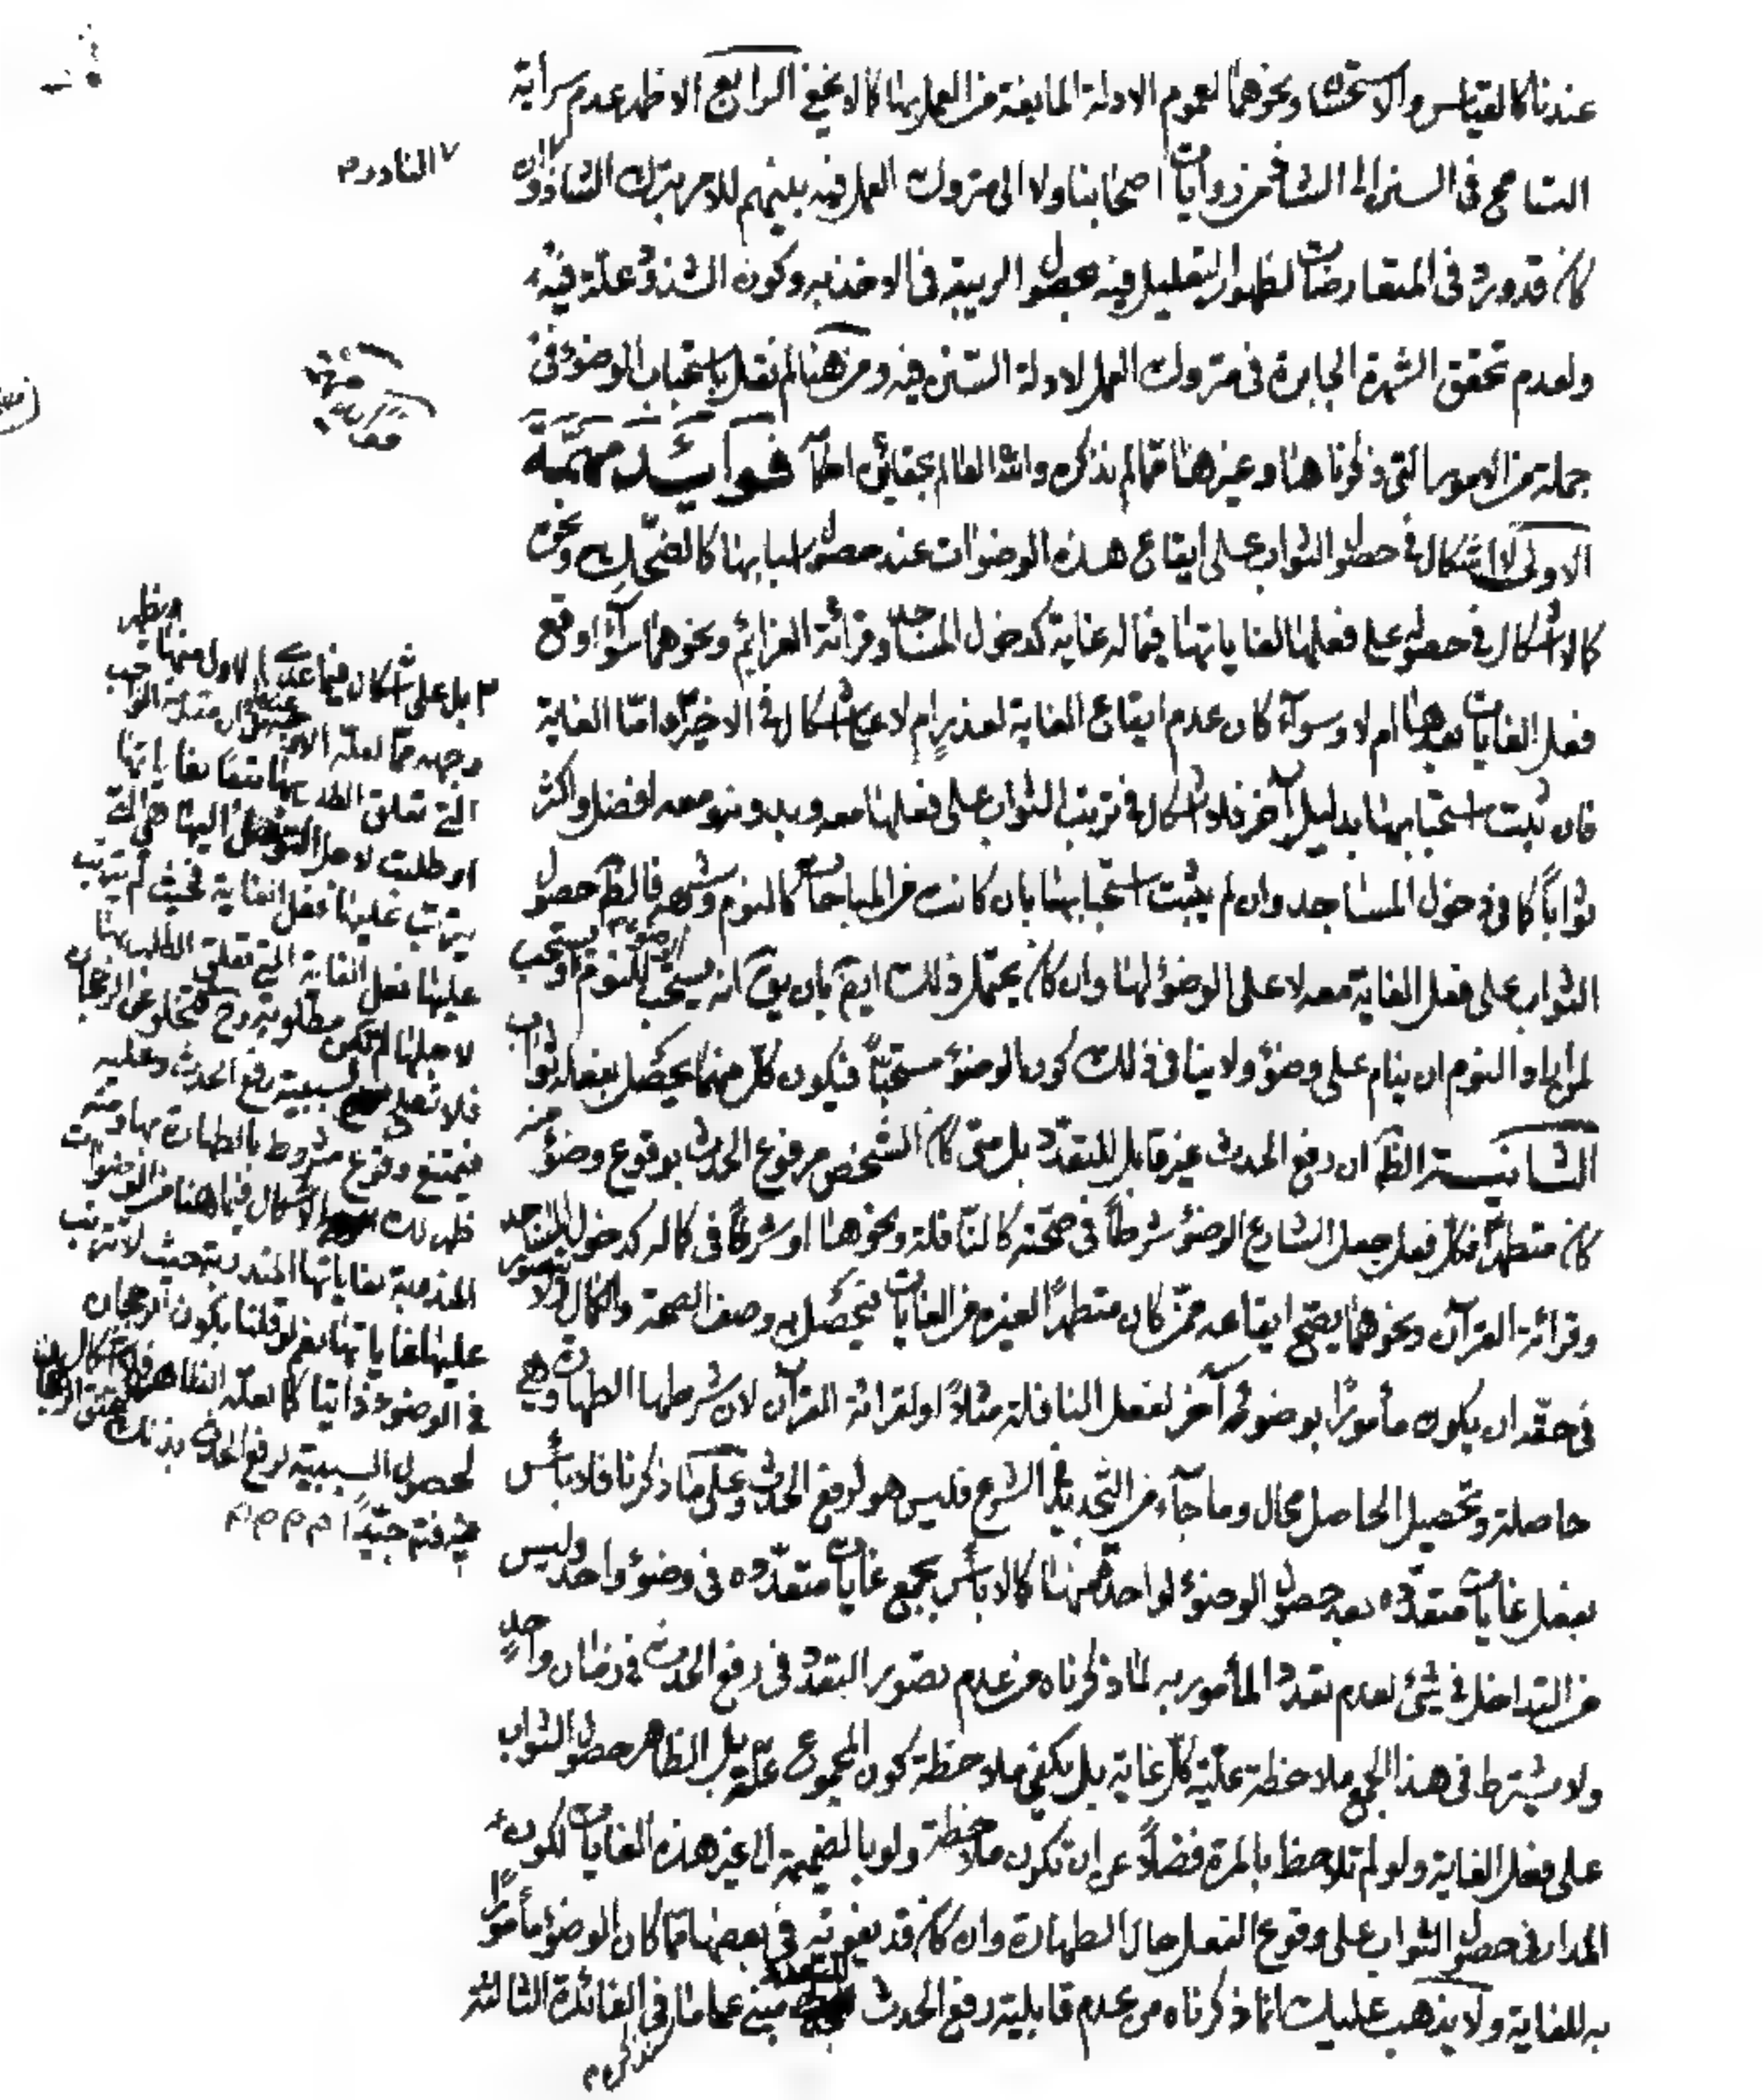 عندنا كالقياس والاستحسان ونحوهما لعموم الادلة المانعة من العمل بها كما لا يخفى الرابع الاظهر عدم سراية
التسامح في السنن الى الشاذ من روايات اصحابنا ولا الى متروك العمل فيه بينهم للامر بترك الشاذ وان
كان قد ورد في المتعارضات لظهور التعليل فيه بحصول الريبة في الاخذ به وكون الشذوذ علة فيه
ولعدم تحقق الشهرة الجابرة في متروك العمل لادلة السنن فيه ومن هنا لم نقل باستحباب الوضوء في
جملة من الامور التي ذكرناها هنا وغيرها مما لم نذكره والله العالم بحقائق احكامه فوائد مهمة
الاولى لا اشكال في حصول الثواب على ايقاع هذه الوضوءات عند حصول اسبابها كالضحك ونحوه
كالاشكال في حصوله على فعلها لغاياتها فيما له غاية كدخول المساجد وقرائة العزائم ونحوهما سوآء وقع
فعل الغايات بعدها ام لا وسوآء كان عدم ايقاع الغاية لعذر ام لا على اشكال في الاخير واما الغاية
فان ثبت استحبابها بدليل آخر فلا اشكال في ترتب الثواب على فعلها معه وبدونه ومعه افضل واكثر
ثواباً كما في دخول المساجد وان لم يثبت استحبابها بان كانت من المباحات كالنوم وشبهه فالظم حصول
الثواب على فعل الغاية معه لا على الوضوء لها وان كان يحتمل ذلك ايضم بان يق انه يستحب للنوم الوضوء م او يستحب
لمن اراد النوم ان ينام على وضوء ولا ينافي ذلك كون الوضوء مستحباً فيكون كل منهما يحصل بفعله ثواب
الثانية الظ ان رفع الحدث غير قابل للتعدد بل متى كان الشخص مرفوع الحدث بوقوع وضوء منه
كان متطهراً فكل فعل جعل الشارع الوضوء شرطاً في صحته كالنافلة ونحوها او شرطاً في كماله كدخول المساجد
وقرائة القرآن ونحوهما يصح ايقاعه ممن كان متطهراً لغيره من الغايات فيحصل به وصف الصحة والكمال ولا يتصور
في حقه ان يكون مأموراً بوضوء آخر لفعل النافلة مثلاً او لقرائة القرآن لان شرطها الطهارة وهي
حاصلة وتحصيل الحاصل محال وما جآء من التجديد في الشرع فليس هو لرفع الحدث وعلى ما ذكرنا فلا بأس
بفعل غايات متعددة بعد حصول الوضوء لواحدة منها كما لا بأس بجمع غايات متعددة في وضوء واحد وليس
من التداخل في شيء لعدم تعدد المأمور به لما ذكرناه من عدم تصور التعدد في رفع الحدث في زمان واحد
ولا يشترط في هذا الجمع ملاحظة علية كل غاية بل يكفي ملاحظة كون المجموع علة بل الظاهر حصول الثواب
على فعل الغاية ولو لم تلاحظ بالمرة فضلاً عن ان تكون ملاحظة ولو بالضميمة الى غير هذه الغايات لكون
المدار في حصول الثواب على وقوع الفعل حال الطهارة وان كان قد يفوته في بعضها مما كان الوضوء مأموراً
به للغاية ولا يذهب عليك ان ما ذكرناه من عدم قابلية رفع الحدث للتعدد مبني على ما في الفائدة الثالثة
سنذكره م
النادر م
بل على اشكال فيما عدا الاول منها ويظهر
وجهه مما لعله الاقوى عندنا من ان مقدمة الواجب
التي تعلق الطلب بها متعلقا بغاياتها
او طلبت لاجل التوصل اليها هي التي
يترتب عليها فعل الغاية فحيث لم يترتب
عليها فعل الغاية التي تعلق الطلب بها
لاجلها لم تكن مطلوبة وح فتخلو عن الرجحان
فلا تصلح لسببية رفع الحدث وعليه
فيمتنع وقوع مشروط بالطهارة بها ومنه
ظهر لك الاشكال فيما هنا من الوضوءات
المندوبة لغاياتها المندوبة حيث لا تترتب
عليها غاياتها نعم لو قلنا بكون الرجحان
في الوضوء ذاتيا كما لعله الظاهر فلا اشكال
لحصول السببية لرفع الحدث بذلك
فافهم جيداً م م م م